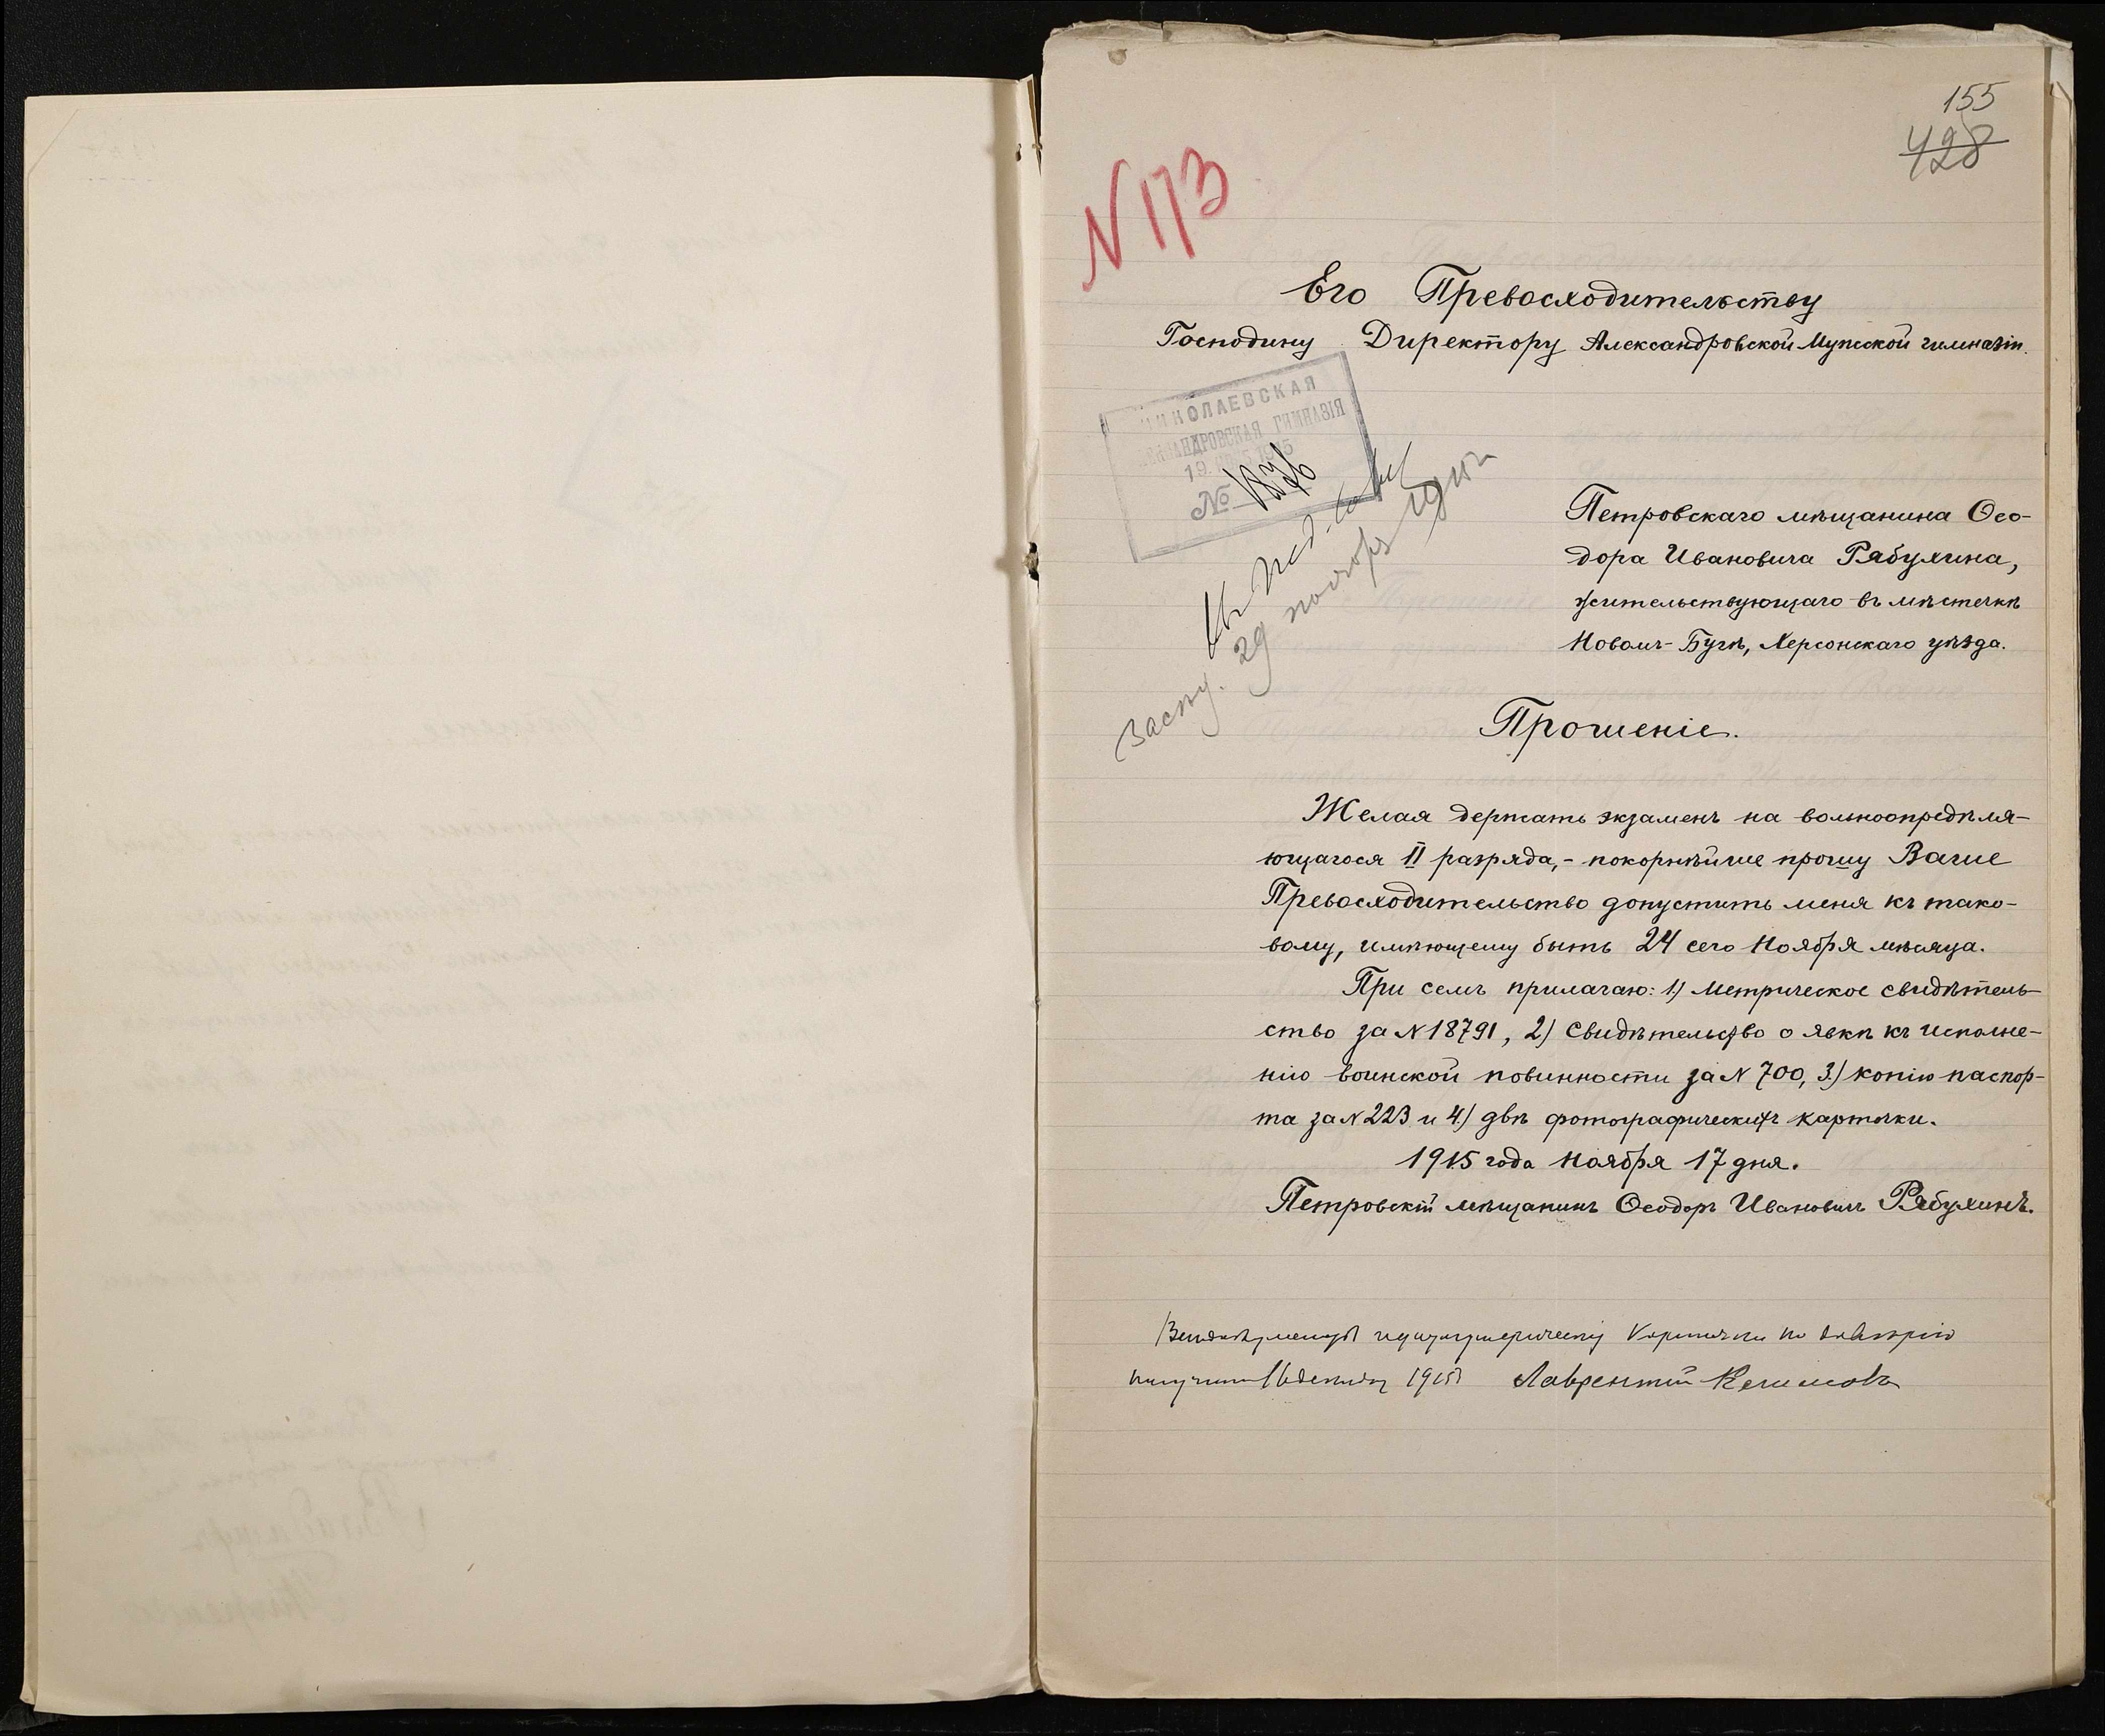 155
428
N 173
Его Превосходительству
Господину Директору Александровской Мужской гимназіи.
НИКОЛАЕВСКАЯ
АЛЕКСАНДРОВСКАЯ ГИМНАЗІЯ
19. 1915
№ 1876
Въ пед.
29 ноября
Петровскаго мѣщанина Ѳео-
дора Ивановича Рябухина,
жительствующаго въ мѣстечкѣ
Новомъ-Бугѣ, Херсонскаго уѣзда.
Прошеніе.
Желая держать экзаменъ на вольноопредѣля-
ющагося II разряда,- покорнѣйше прошу Ваше
Превосходительство допустить меня къ тако-
вому, имѣющему быть 24 сего Ноября мѣсяца.
При семъ прилагаю: 1) Метрическое свидѣтель-
ство за N 18791, 2) Свидѣтельство о явкѣ къ исполне-
нію воинской повинности за N 700, 3.) копію паспор-
та за N 223 и 4.) двѣ фотографическихъ карточки.
1915 года Ноября 17 дня.
Петровскій мѣщанинъ Ѳеодоръ Ивановичъ Рябухинъ.
карточки по
получилъ 1915 Лаврентій